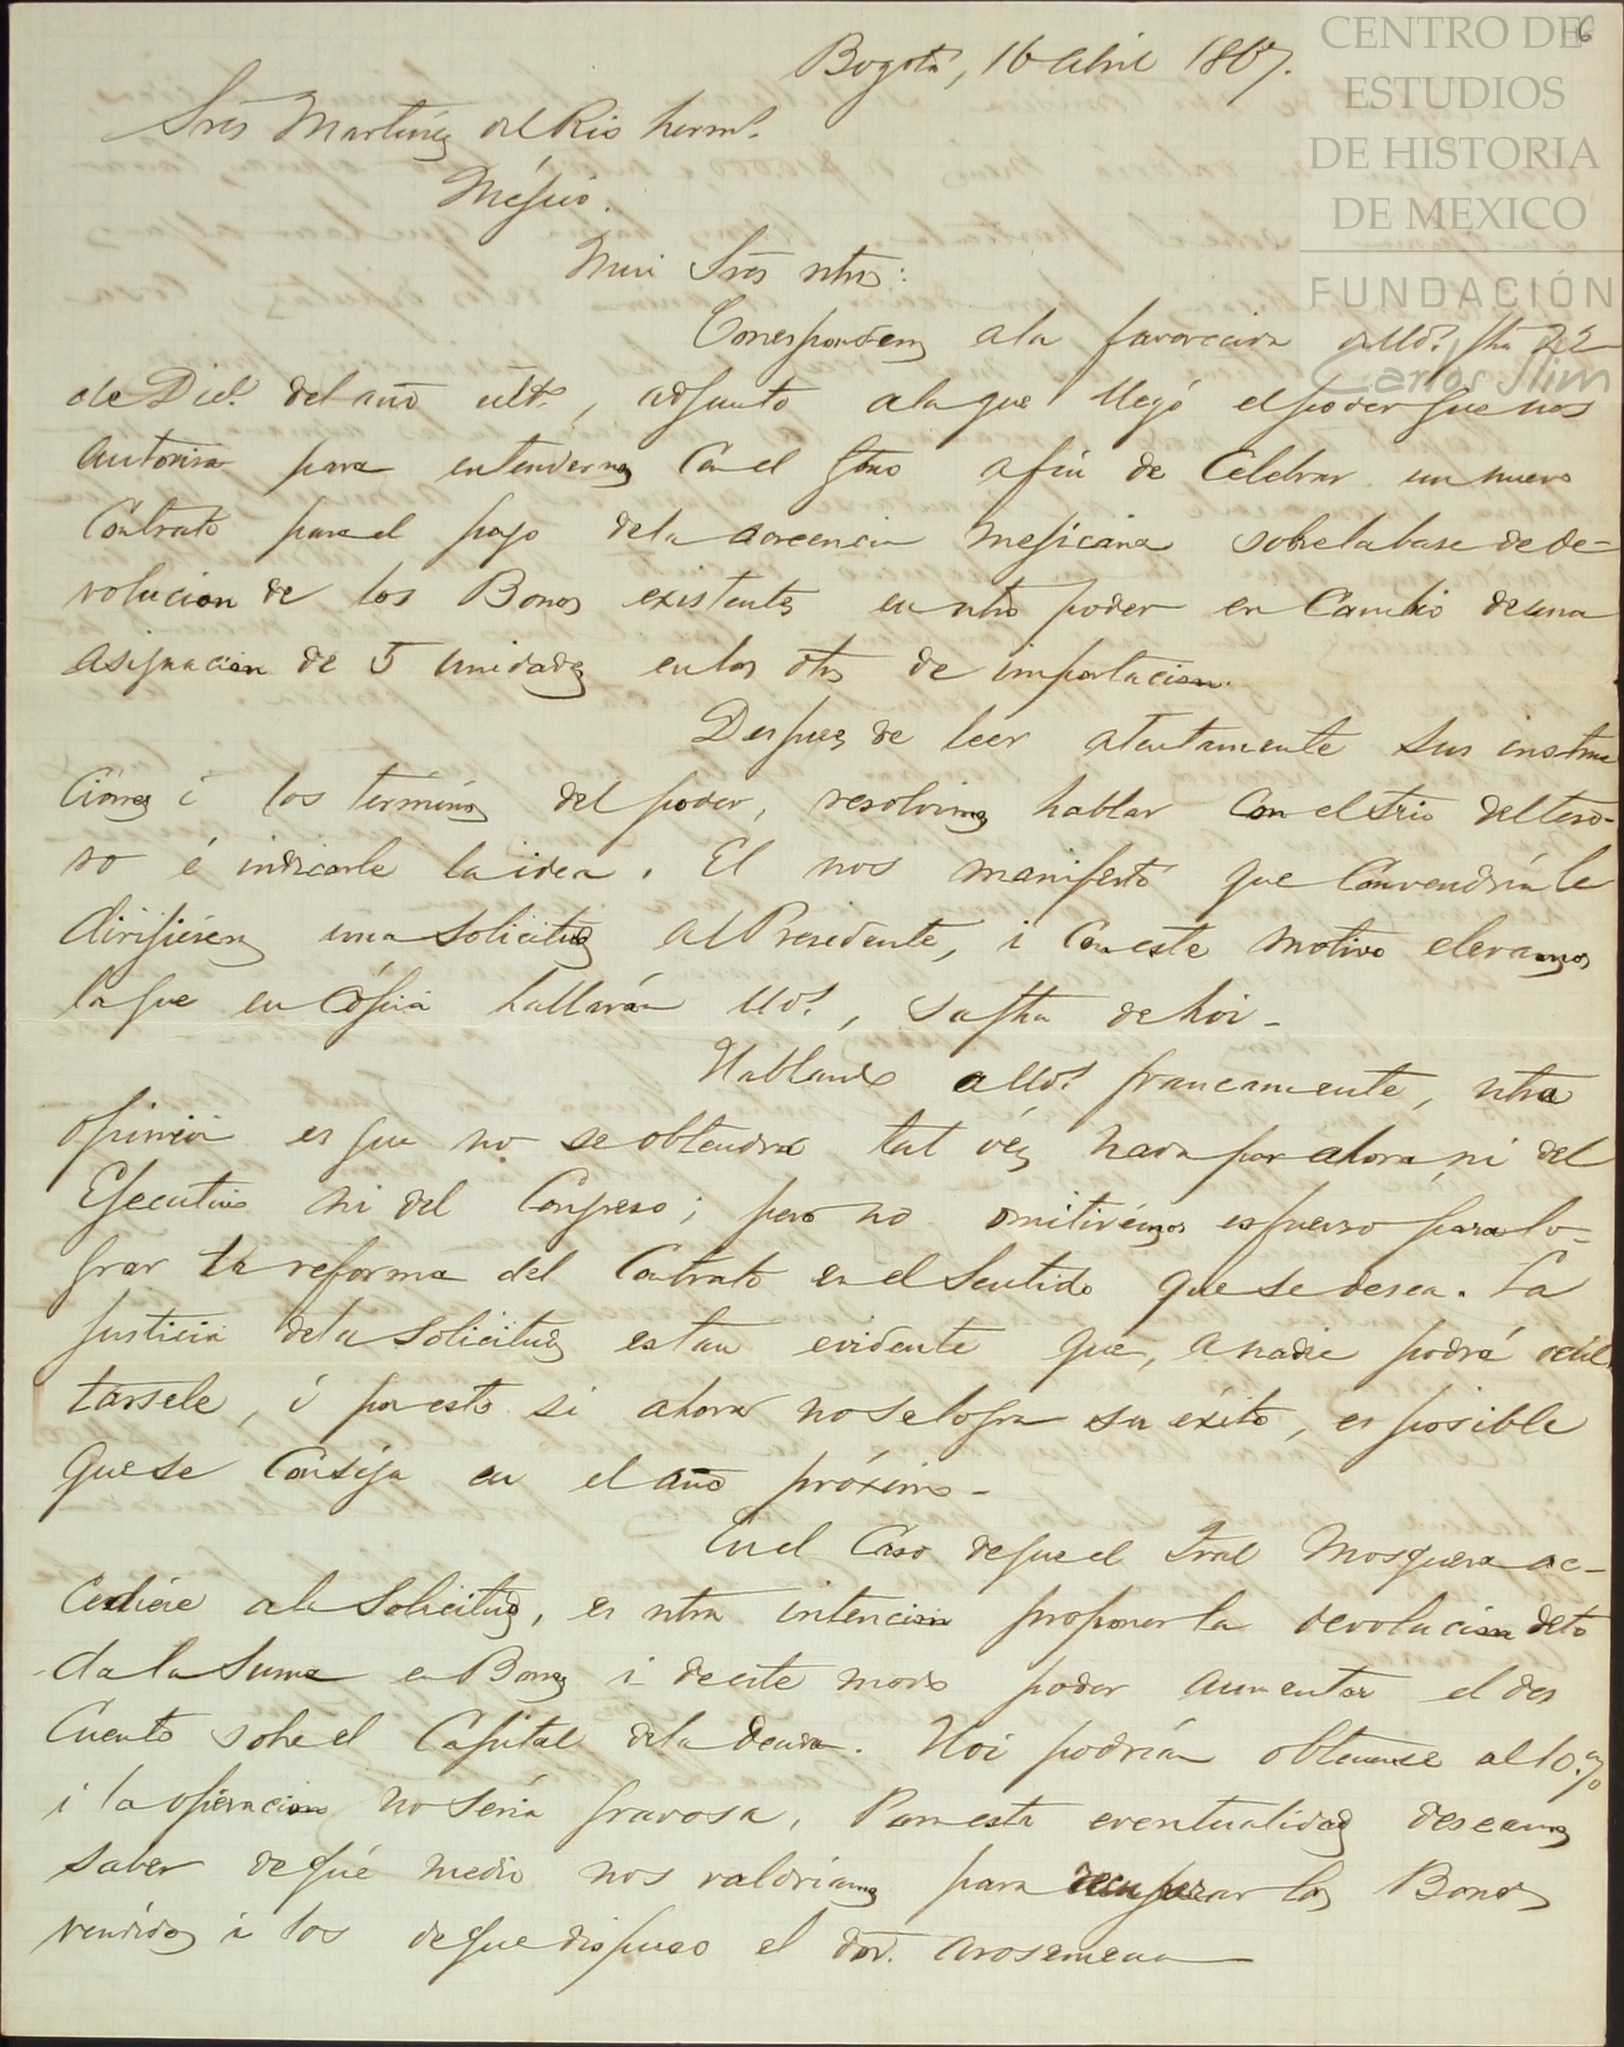 CENTRO DE
ESTUDIOS
DE HISTORIA
DE MEXICO
FUNDACIÓN
Carlos Slim
6
Bogotá, 16 abril 1867.
Sres Martínez del Rio herms.
Méjico.
Mui Sres ntros:
Correspondemos a la favorecida de Uds. fha 22
de Dice. del año ulto., adjunto a la que llegó el poder que nos
autoriza para entendernos con el Gbno a fin de celebrar un nuevo
Contrato para el pago de la acreencia mejicana sobre la base de de-
volucion de los Bonos existentes en ntro poder en cambio de una
asignacion de 5 unidades en los dros de importacion.
Despues de leer atentamente sus instruc
ciones i los términos del poder, resolvimos hablar con el Srio del teso-
ro é indicarle la idea. El nos manifestó que convendría le
dirijiésemos una solicitud al Presidente, i con este motivo elevamos
la que en cópia hallarán Uds., su fha de hoi -
Hablando a Uds. francamente, ntra
opinion es que no se obtendrá tal véz nada por ahora, ni del
Ejecutivo ni del Congreso; pero no omitirémos esfuerzo para lo-
grar la reforma del Contrato en el sentido que se desea. La
justicia de la solicitud es tan evidente que, a nadie podrá ocul
társele, i por esto si ahora no se logra su éxito, es posible
que se consiga en el año próximo -
En el caso de que el Gral Mosquera ac-
cediere a la solicitud, es ntra intencion proponer la devolucion de to
da la suma en Bonos i de este modo poder aumentar el des
cuento sobre el Capital de la deuda. Hoi podrían obtenerse al 10. %
i la operacion no sería gravosa. Para esta eventualidad deseamos
saber de qué medio nos valdríamos para recuperar los Bonos
vendidos i los de que dispuso el dor. Arosemena